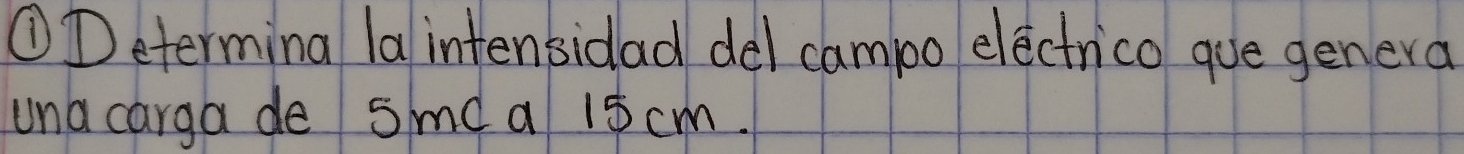 ① Determina la intensidad del campo eléctrico que genera
una carga de 5mC a 15cm.